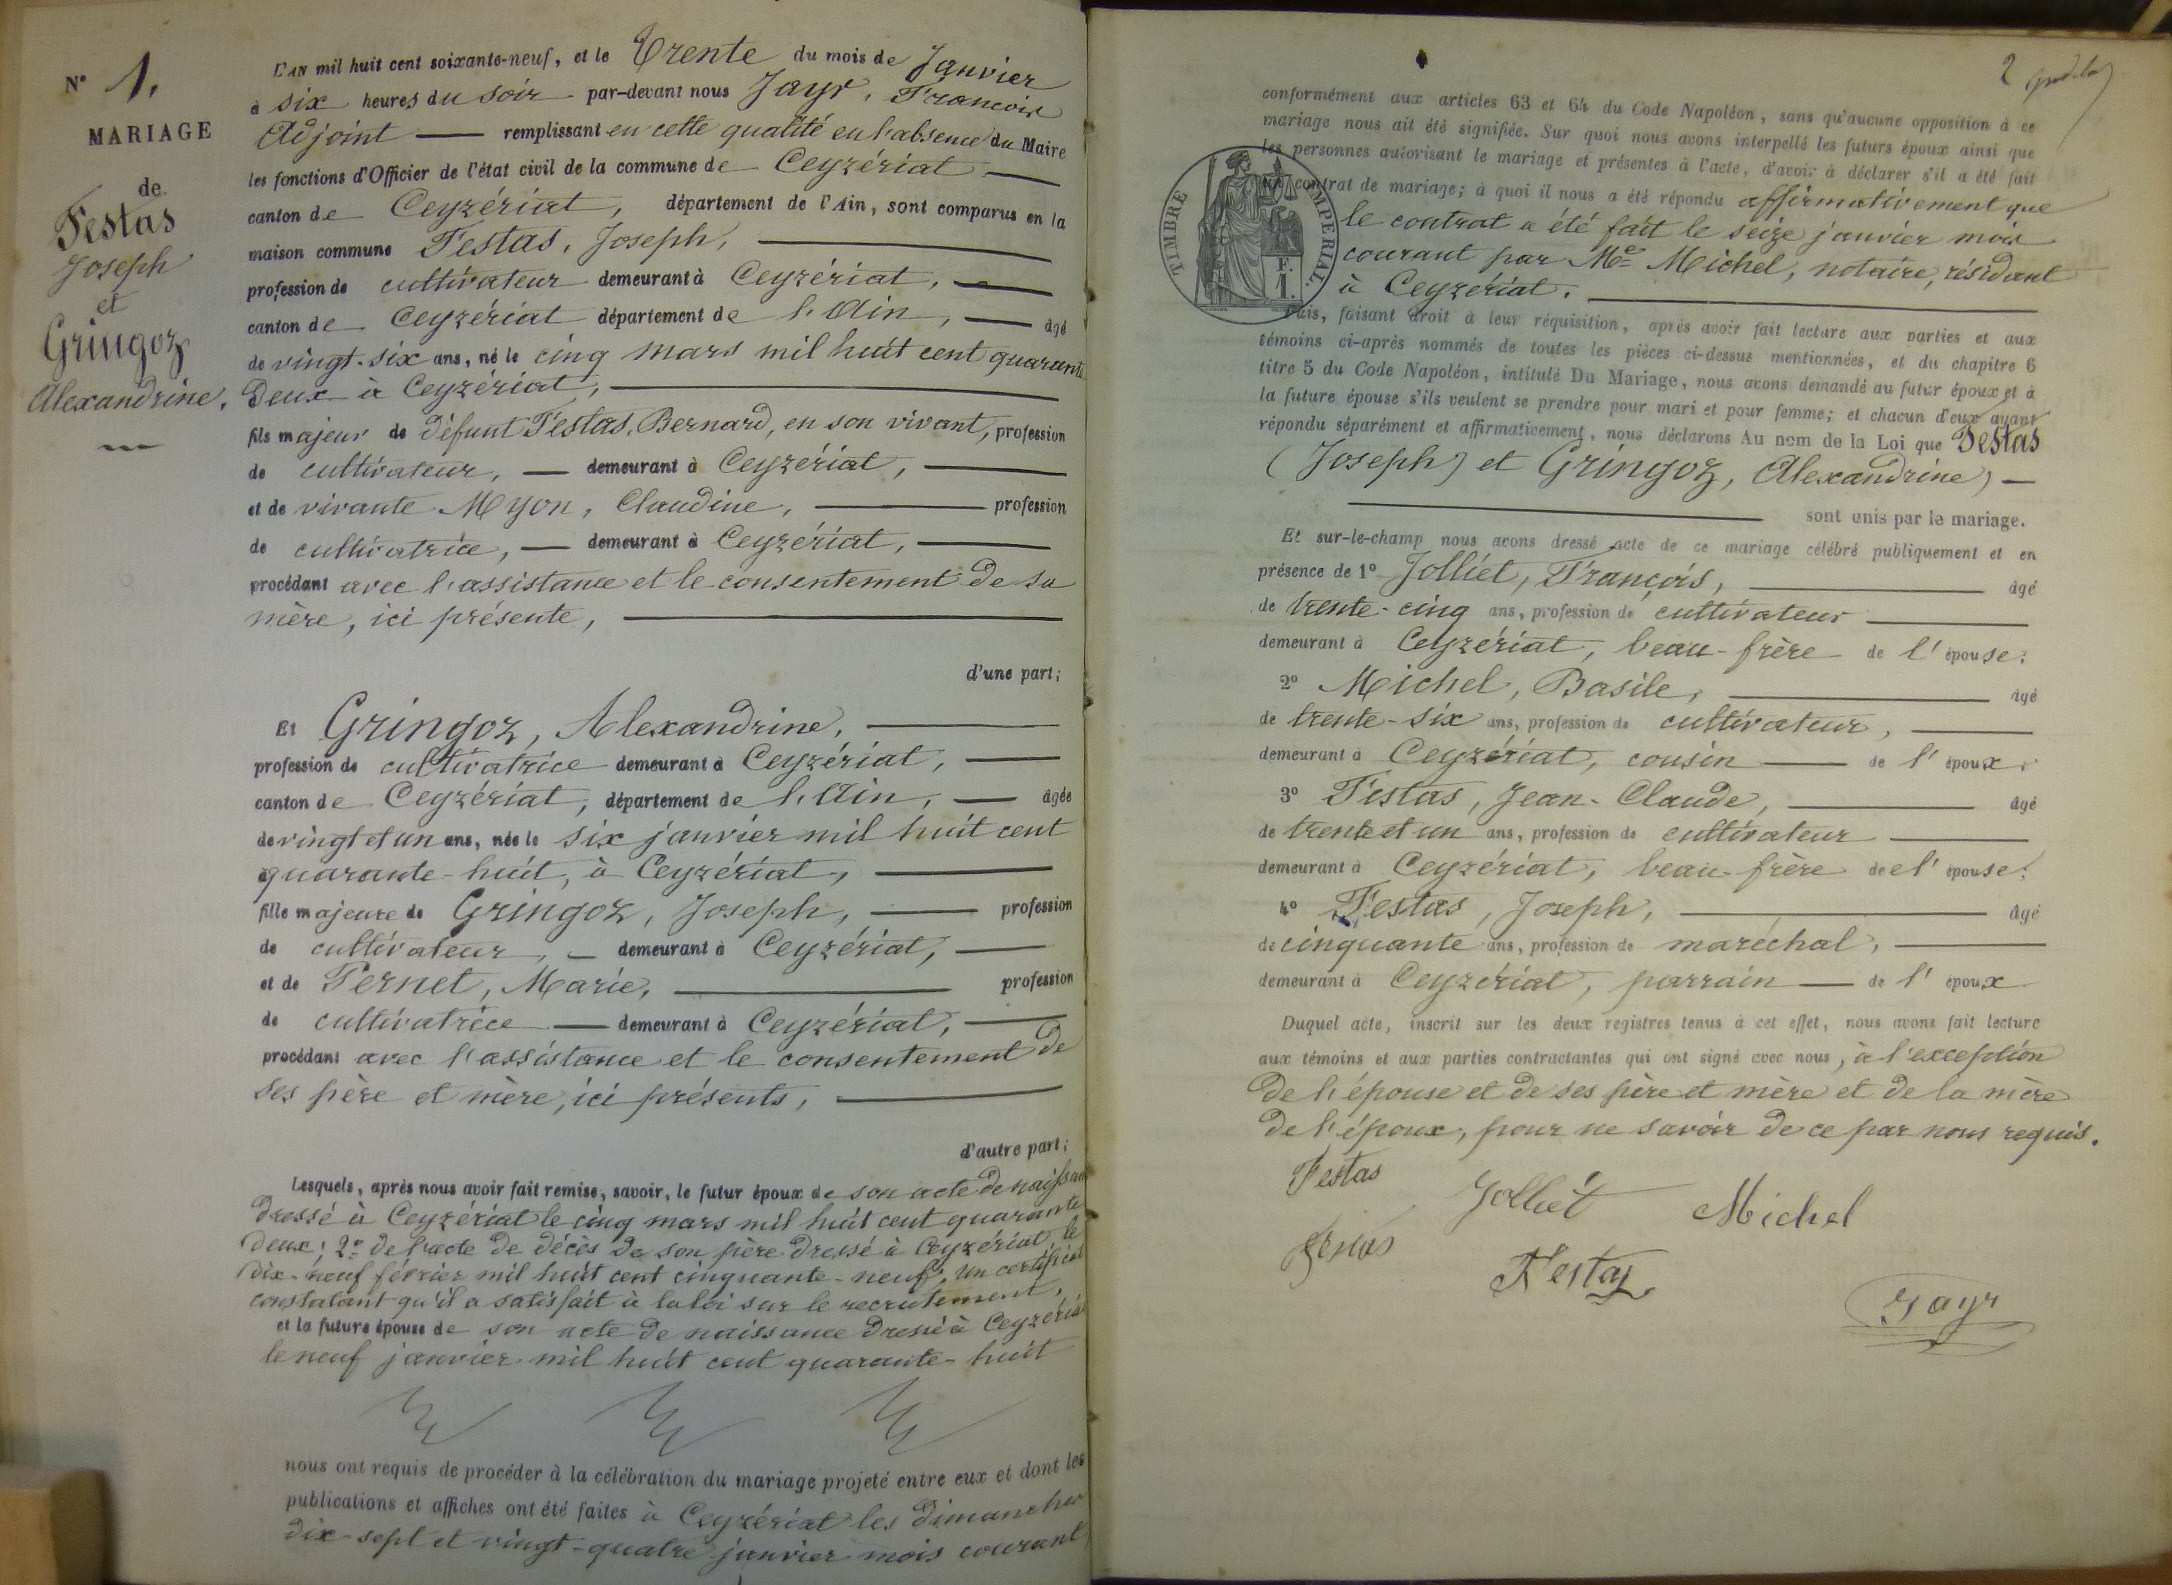 N° 1.
MARIAGE
de
Festas
Joseph
et
Gringoz
Alexandrine.
L'AN mil huit cent soixante-neuf, et le Trente du mois de Janvier
à six heures du soir par-devant nous Jayr, François
Adjoint remplissant en cette qualité en l'absence du Maire
les fonctions d'Officier de l'état civil de la commune de Ceyzériat
canton de Ceyzériat, département de l'Ain, sont comparus en la
maison commune Festas, Joseph,
profession de cultivateur demeurant à Ceyzériat,
canton de Ceyzériat département de l'Ain, âgé
de vingt-six ans, né le cinq mars mil huit cent quarante
deux à Ceyzériat,
fils majeur de défunt Festas, Bernard, en son vivant, profession
de cultivateur, demeurant à Ceyzériat,
et de vivante Myon, Claudine, profession
de cultivatrice, demeurant à Ceyzériat,
procédant avec l'assistance et le consentement de sa
mère, ici présente,
d'une part;
Et Gringoz, Alexandrine,
profession de cultivatrice demeurant à Ceyzériat,
canton de Ceyzériat, département de l'Ain, âgée
de vingt et un ans, née le six janvier mil huit cent
quarante-huit, à Ceyzériat,
fille majeure de Gringoz, Joseph, profession
de cultivateur, demeurant à Ceyzériat,
et de Pernet, Marie, profession
de cultivatrice demeurant à Ceyzériat,
procédant avec l'assistance et le consentement de
ses père et mère, ici présents,
d'autre part;
Lesquels, après nous avoir fait remise, savoir, le futur époux de son acte de naissan
dressé à Ceyzériat le cinq mars mil huit cent quarante
deux; 2° de l'acte de décès de son père dressé à Ceyzériat, le
dix-neuf février mil huit cent cinquante-neuf, Un certificat
constatant qu'il a satisfait à la loi sur le recrutement,
et la future épouse de son acte de naissance dressé à Ceyzériat
le neuf janvier mil huit cent quarante-huit
nous ont requis de procéder à la célébration du mariage projeté entre eux et dont les
publications et affiches ont été faites à Ceyzériat les dimanches
dix-sept et vingt-quatre janvier mois courant
2
conformément aux articles 63 et 64 du Code Napoléon, sans qu'aucune opposition à ce
mariage nous ait été signifiée. Sur quoi nous avons interpellé les futurs époux ainsi que
les personnes autorisant le mariage et présentes à l'acte, d'avoir à déclarer s'il a été fait
un contrat de mariage; à quoi il nous a été répondu affirmativement que
le contrat a été fait le seize janvier mois
courant par Me Michel, notaire, résidant
à Ceyzériat.
TIMBRE IMPÉRIAL.
F.
1.
Puis, faisant droit à leur réquisition, après avoir fait lecture aux parties et aux
témoins ci-après nommés de toutes les pièces ci-dessus mentionnées, et du chapitre 6
titre 5 du Code Napoléon, intitulé Du Mariage, nous avons demandé au futur époux et à
la future épouse s'ils veulent se prendre pour mari et pour femme; et chacun d'eux ayant
répondu séparément et affirmativement, nous déclarons Au nom de la Loi que Festas
(Joseph) et Gringoz, Alexandrine)
sont unis par le mariage.
Et sur-le-champ nous avons dressé acte de ce mariage célébré publiquement et en
présence de 1° Jolliet, François, âgé
de trente-cinq ans, profession de cultivateur
demeurant à Ceyzériat, beau-frère de l'épouse;
2° Michel, Basile, âgé
de trente-six ans, profession de cultivateur,
demeurant à Ceyzériat, cousin de l'époux.
3° Festas, Jean-Claude, âgé
de trente et un ans, profession de cultivateur
demeurant à Ceyzériat, beau-frère de l'épouse;
4° Festas, Joseph, âgé
de cinquante ans, profession de maréchal,
demeurant à Ceyzériat, parrain de l'époux
Duquel acte, inscrit sur les deux registres tenus à cet effet, nous avons fait lecture
aux témoins et aux parties contractantes qui ont signé avec nous, à l'exception
de l'épouse et de ses père et mère et de la mère
de l'époux, pour ne savoir de ce par nous requis.
Festas Jolliet Michel
Festas Festas
Jayr